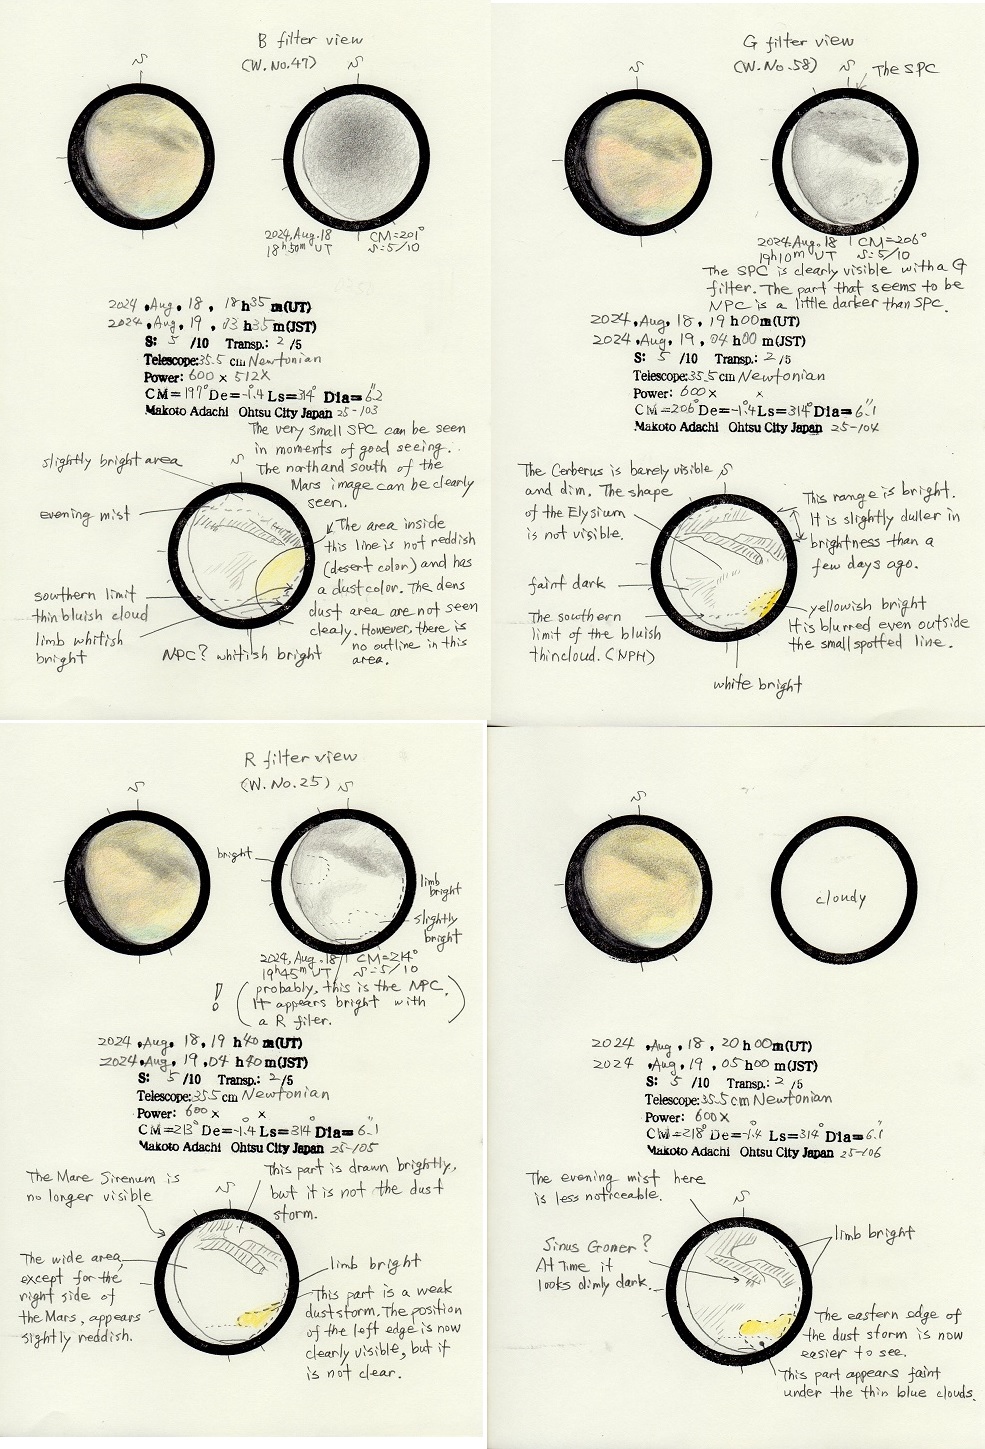 B filter view
(W.No.47)
S
S
2024, Aug. 18 CM=201°
18h50m UT S=5/10
2024, Aug. 18, 18h35m(UT)
2024, Aug. 19, 03h35m(JST)
S: 5 /10 Transp.: 2 /5
Telescope: 35.5 cm Newtonian
Power: 600 x 512x
CM=197° De=-1.4 Ls=314° Dia=6.2"
Makoto Adachi Ohtsu City Japan 25-103
The very small SPC can be seen
in moments of good seeing.
The north and south of the
Mars image can be clearly
seen.
slightly bright area
S
evening mist
The area inside
this line is not reddish
(desert color) and has
a dust color. The dens
dust area are not seen
clealy. However, there is
no outline in this
area.
sowthern limit
thin bluish cloud
limb whitish
bright
NPC? whitish bright
G filter view
(W.No.58)
S
S
The SPC
2024, Aug. 18 CM=206°
19h10m UT S=5/10
The SPC is clearly visible with a G
filter. The part that seems to be
NPC is a little darker than SPC.
2024, Aug. 18, 19h00m(UT)
2024, Aug. 19, 04h00m(JST)
S: 5 /10 Transp.: 2 /5
Telescope: 35.5 cm Newtonian
Power: 600 x x
CM=206° De=-1.4 Ls=314° Dia=6.1"
Makoto Adachi Ohtsu City Japan 25-104
The Cerberus is barely visible
and dim. The shape
of the Elysium
is not visible.
S
This range is bright.
It is slightly duller in
brightness than a
few days ago.
faint dark
The sowthern
limit of the bluish
thincloud. (NPH)
yellowish bright
It is blurred even outside
the small spotted line.
white bright
R filter view
(W.No.25)
S
S
bright
limb
bright
slightly
bright
2024, Aug. 18 CM=214°
19h45m UT S=5/10
! (probably, this is the NPC.
It appears bright with
a R filer.)
2024, Aug. 18, 19h40m(UT)
2024, Aug. 19, 04h40m(JST)
S: 5 /10 Transp.: 2 /5
Telescope: 35.5 cm Newtonian
Power: 600 x x
CM=213° De=-1.4 Ls=314° Dia=6.1"
Makoto Adachi Ohtsu City Japan 25-105
The Mare Sirenum is
no longer visible
This part is drawn brightly,
but it is not the dust
storm.
S
The wide area,
except for the
right side of
the Mars, appears
sightly reddish.
limb bright
This part is a weak
dust storm. The position
of the left edge is now
clearly visible, but it
is not clear.
S
cloudy
2024, Aug. 18, 20h00m(UT)
2024, Aug. 19, 05h00m(JST)
S: 5 /10 Transp.: 2 /5
Telescope: 35.5 cm Newtonian
Power: 600 x
CM=218° De=-1.4 Ls=314° Dia=6.1"
Makoto Adachi Ohtsu City Japan 25-106
The evening mist here
is less noticeable.
S
Sinus Gomer?
At time it
looks dimly dark.
limb bright
The eastern edge of
the dust storm is now
easier to see.
This part appears faint
under the thin blue clouds.